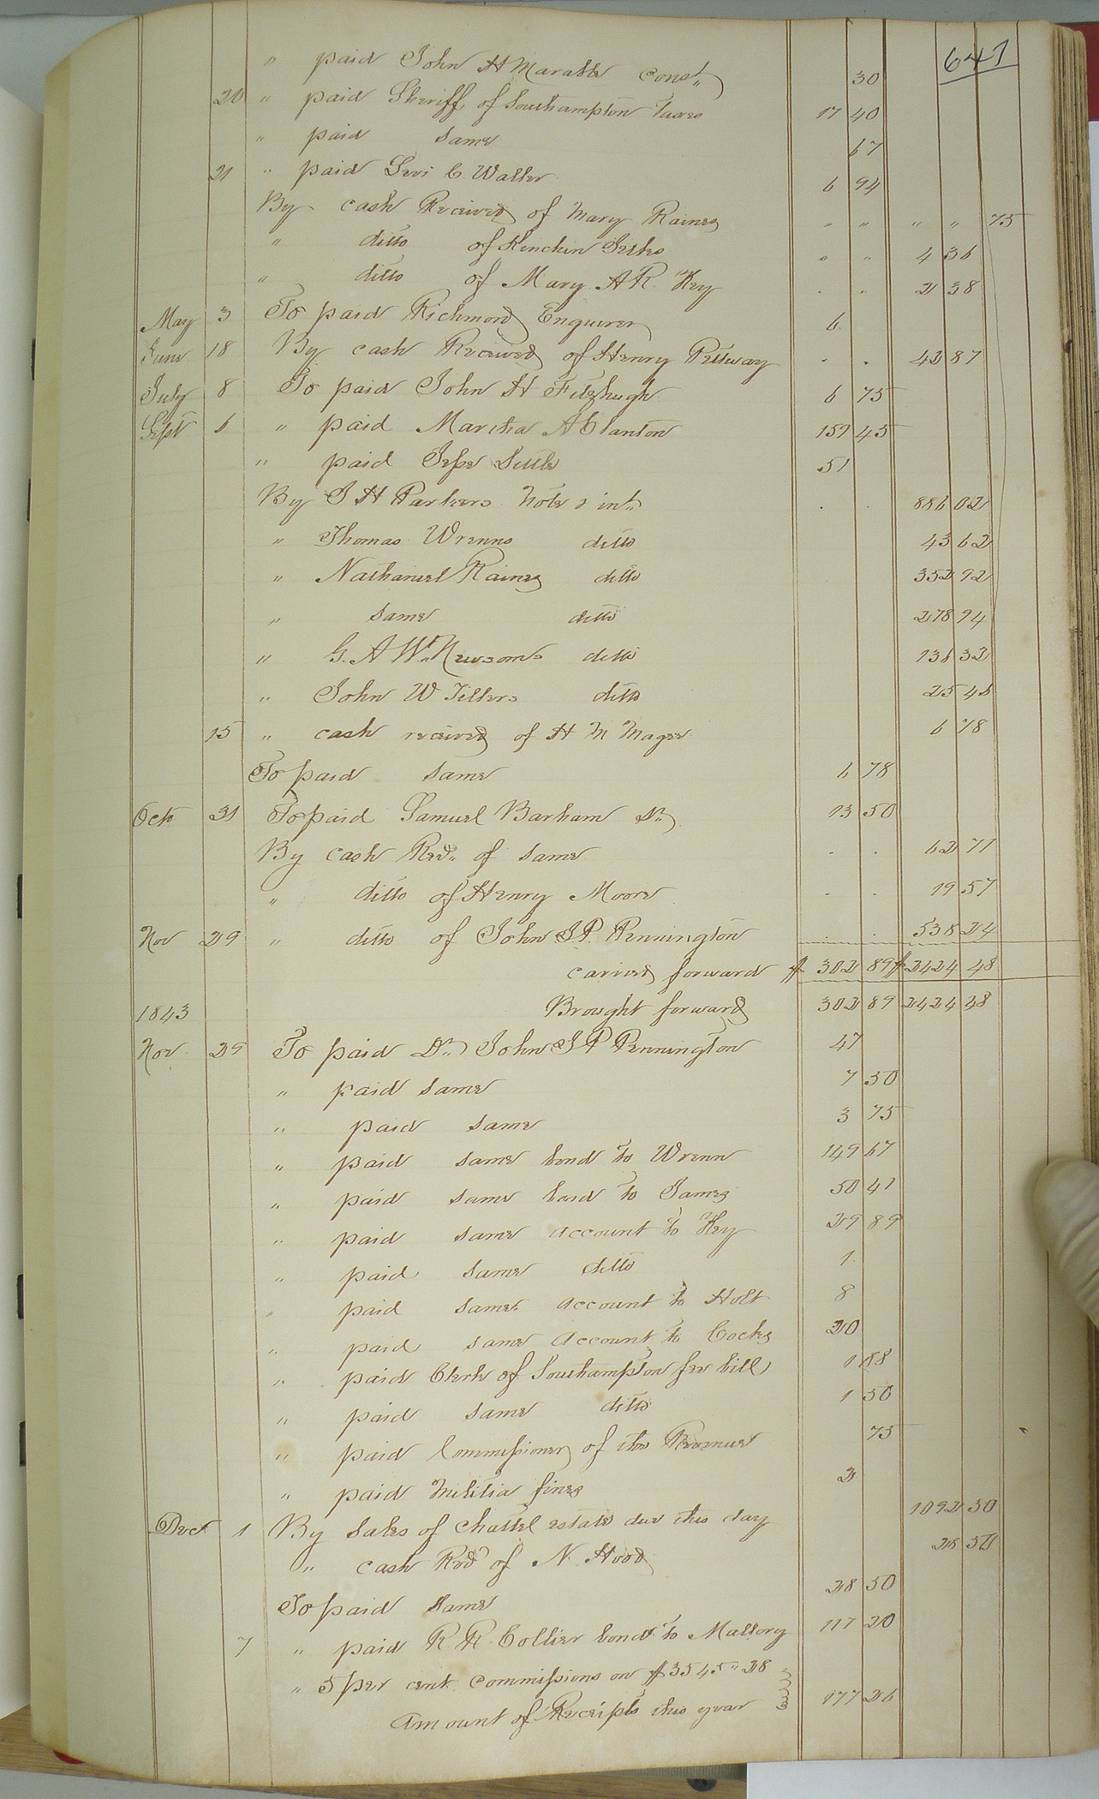 641
" paid John H Marable Const. 30
20 " paid Sheriff of Southampton Taxes 17 40
" paid same 67
21 " paid Levi C Waller 6 94
By cash Received of Mary Raines " " " " 75
" ditto of Kinchen " " 4 36
" ditto of Mary A R Key . . 2 38
May 3 To paid Richmond Enquirer 6
June 18 By cash Received of Henry Pettway . . 42 87
July 8 To paid John H Fitzhugh 6 75
Sept 6 " paid Martha A Clanton 159 45
" paid Jesse Little 51
By J H Parkers Note & int. . . 886 02
" Thomas Wrenns ditto 43 62
" Nathaniel Raines ditto 352 92
" same ditto 278 94
" G. A W. Newsoms ditto 136 32
" John W Fillers ditto 25 46
15 " cash received of H M Mager 6 78
To paid same 6 78
Oct 31 To paid Samuel Barham Dr. 13 50
By cash Recd. of same . . 62 71
" ditto of Henry Moore . . 19 57
Nov 29 " ditto of John S P Pennington . . 538 24
carried forward $ 302 89 $ 2424 48
1843 Brought forward 302 89 2424 48
Nov. 29 To paid Dr. John S P Pennington 47
" paid same 7 50
" paid same 3 75
" paid same bond to Wrenn 149 67
" paid same bond to James 50 41
" paid same account to Key 29 89
" paid same ditto 1
" paid same account to Holt 8
" paid same account to Cocks 20
" paid Clerk of Southampton fee bill 1 88
" paid same ditto 1 50
" paid Commissioner of the Revenue 75
" paid Militia fines 2
Decr. 1 By sales of chattel estate due this day 1092 30
" cash Recd of N. Hood 28 50
To paid same 28 50
7 " paid R. R. Collier bond to Mallory 117 20
" 5 per cent commissions on $3545"28
Amount of Receipts this year 177 26